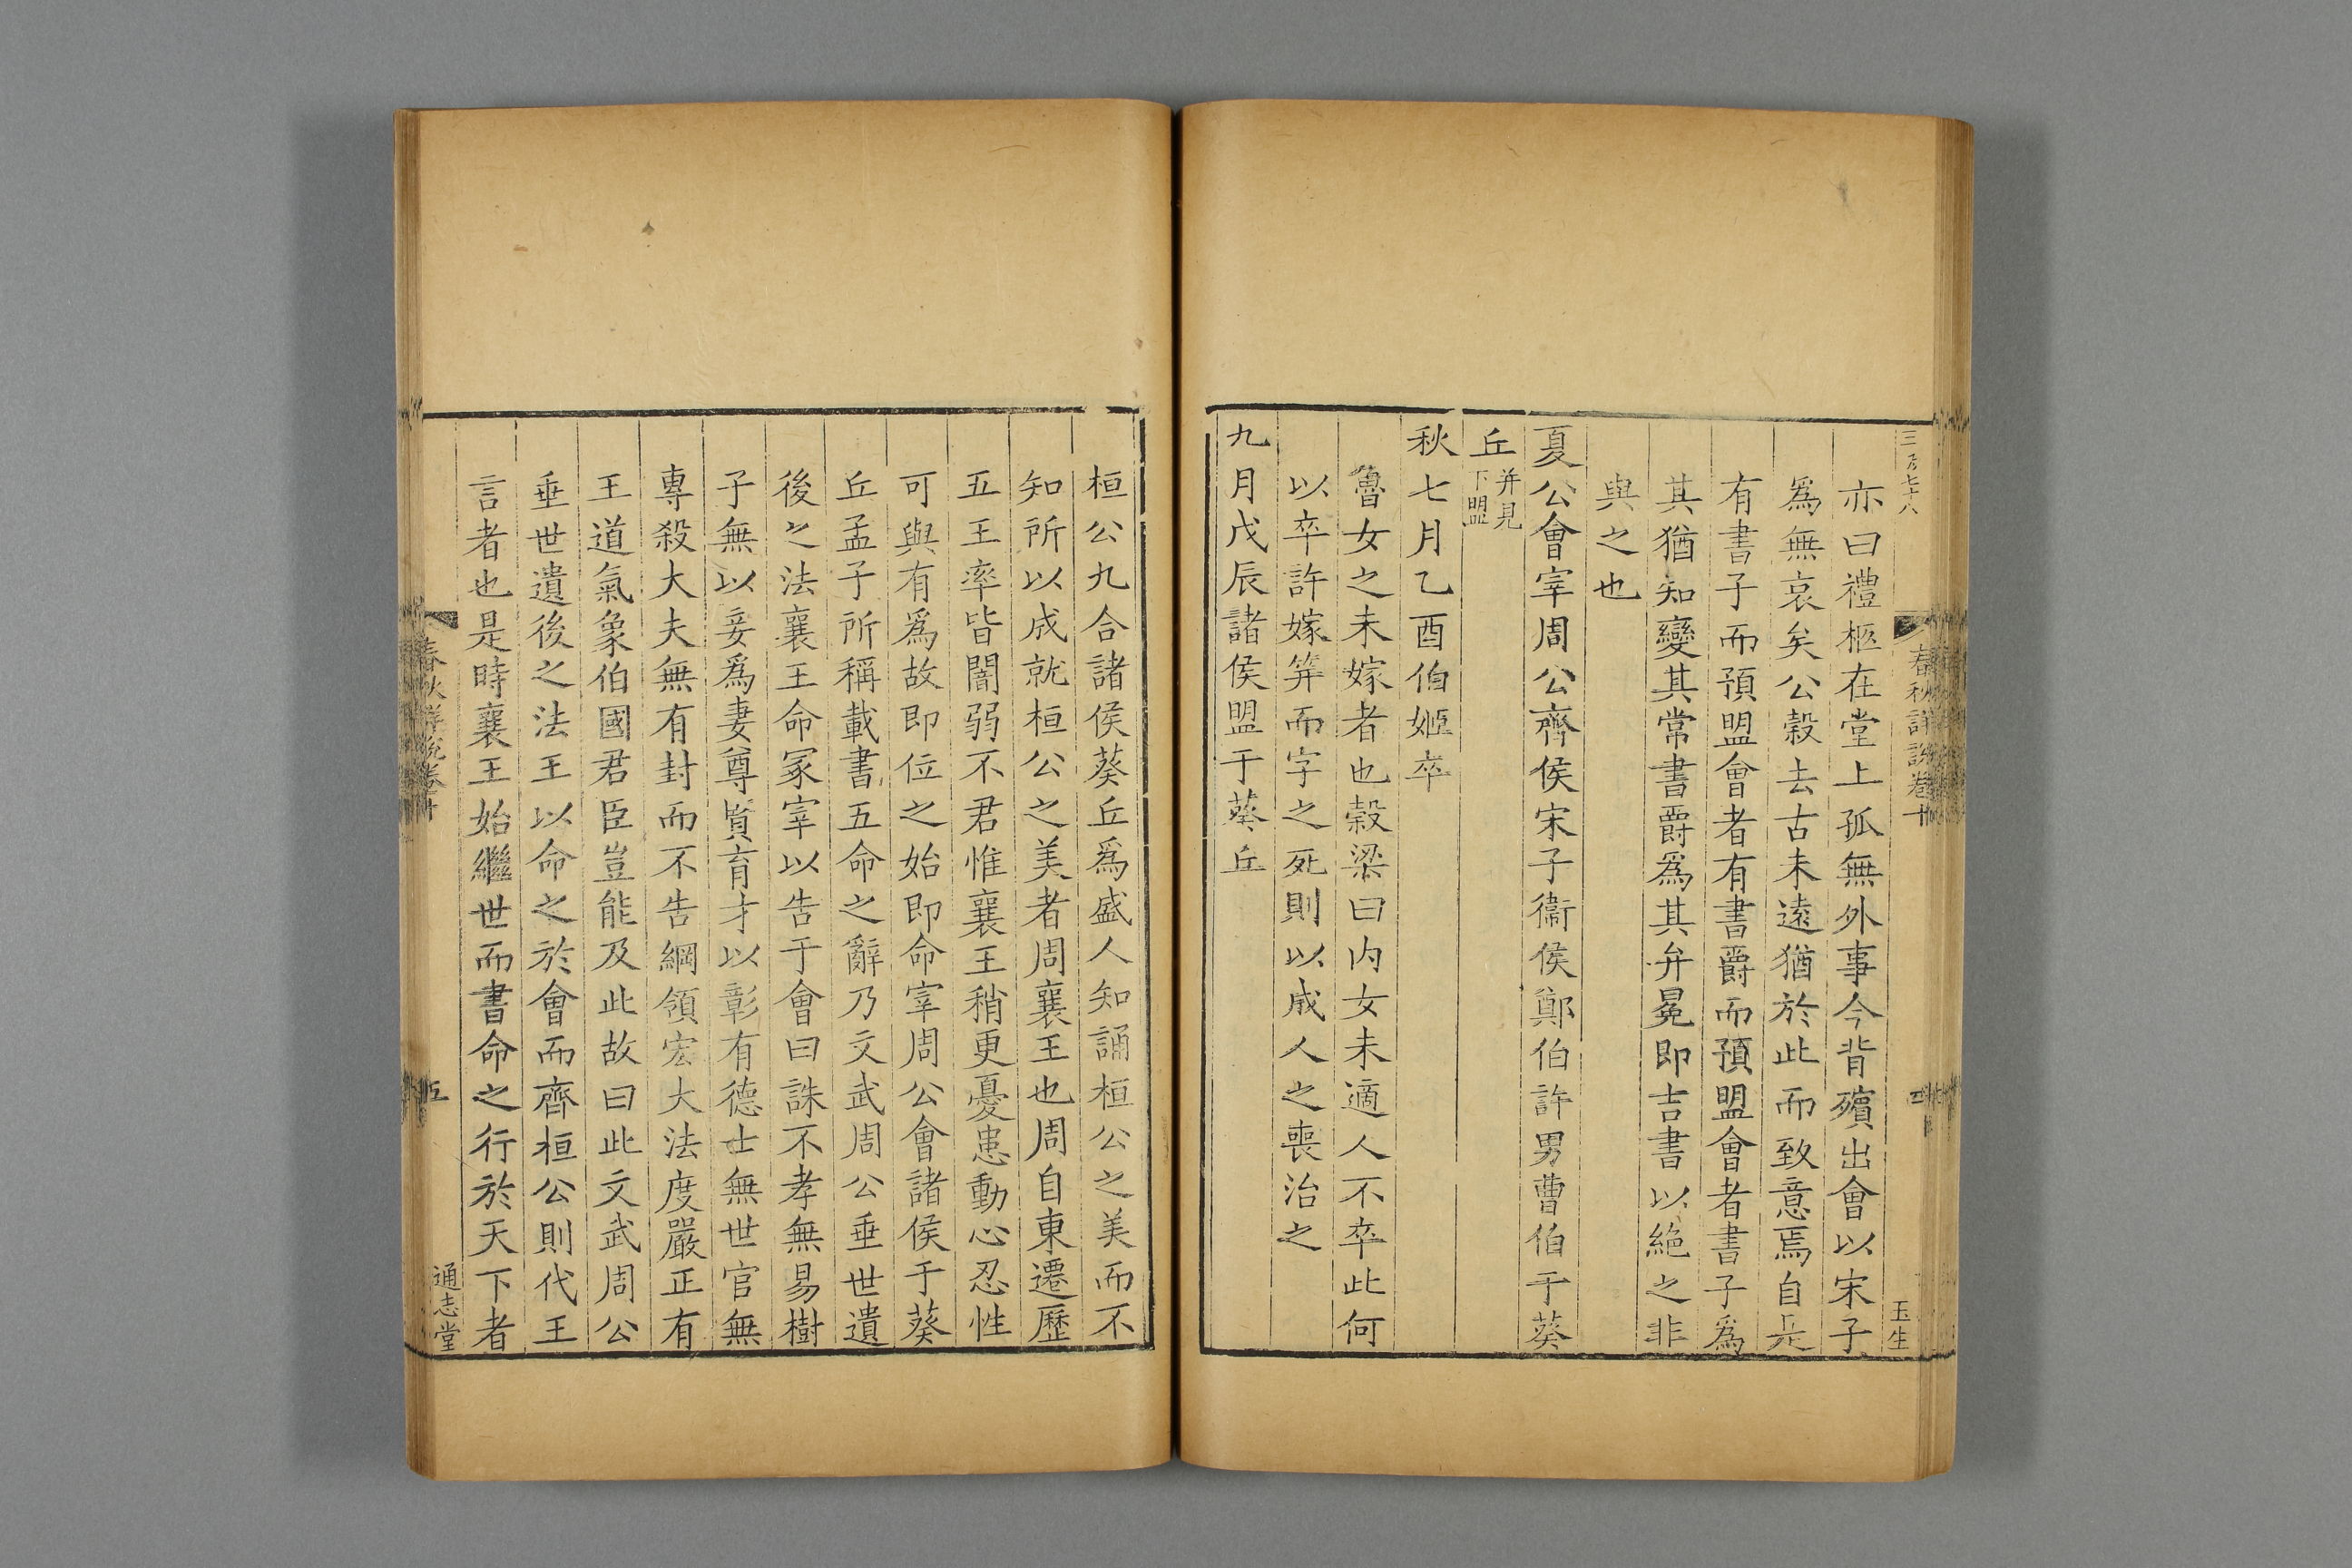 春秋詳説卷十
四
玉生
亦曰禮柩在堂上孤無外事今背殯出會以宋子
爲無哀矣公穀去古未遠猶於此而致意焉自是
有書子而預盟會者有書爵而預盟會者書子爲
其猶知變其常書爵爲其弁冕即吉書以絕之非
與之也
夏公會宰周公齊侯宋子衞侯鄭伯許男曹伯于葵
丘并見下盟
秋七月乙酉伯姬卒
魯女之未嫁者也榖梁曰内女未適人不卒此何
以卒許嫁筓而字之死則以成人之喪治之
九月戊辰諸侯盟于葵丘
桓公九合諸侯葵丘爲盛人知誦桓公之美而不
知所以成就桓公之美者周襄王也周自東遷歷
五王率皆闇弱不君惟襄王稍更憂患動心忍性
可與有爲故即位之始即命宰周公會諸侯于葵
丘孟子所稱載書五命之辭乃文武周公垂世遺
後之法襄王命冢宰以告于會曰誅不孝無易樹
子無以妾爲妻尊賢育才以彰有德士無世官無
專殺大夫無有封而不告綱領宏大法度嚴正有
王道氣象伯國君臣豈能及此故曰此文武周公
垂世遺後之法王以命之於會而齊桓公則代王
言者也是時襄王始繼世而書命之行於天下者
春秋詳說卷十
五
通志堂